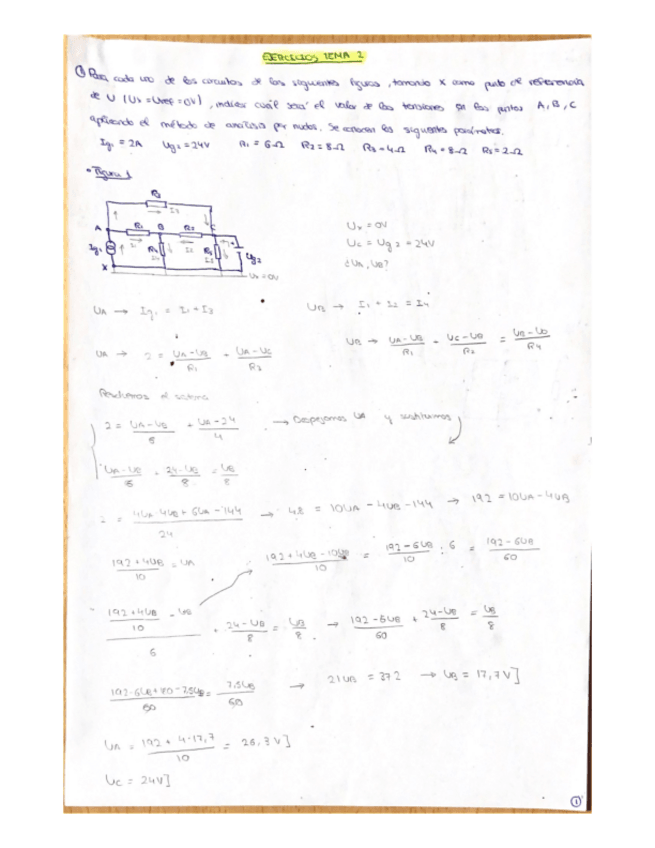 EJERCICIOS TEMA 2
① Para cada uno de los circuitos de las siguientes figuras, tomando X como punto de referencia
de U (Ux = Uref = 0V), indicar cuál será el valor de las tensiones en los puntos A, B, C
aplicando el método de análisis por nudos. Se conocen los siguientes parámetros.
Ig1 = 2A Ug2 = 24V R1 = 6Ω R2 = 8Ω R3 = 4Ω R4 = 8Ω R5 = 2Ω
• Figura 1
R3
I3
A R1 B R2 C
Ig1 I1 R4 I2 R5 Ug2
X Ux = 0V
Ux = 0V
Uc = Ug2 = 24V
¿UA, UB?
UA → Ig1 = I1 + I3 UB → I1 + I2 = I4
UA → 2 = UA - UB / R1 + UA - UC / R2 UB → UA - UB / R1 + UC - UB / R2 = UB - U0 / R4
Resolvemos el sistema
2 = UA - UB / 6 + UA - 24 / 4 → Despejamos UA y sustituimos
UA - UB / 6 + 24 - UB / 8 = UB / 8
2 = 4UA - 4UB + 6UA - 144 / 24 → 48 = 10UA - 4UB - 144 → 192 = 10UA - 4UB
192 + 4UB / 10 = UA 192 + 4UB - 10UB / 10 = 192 - 6UB / 10 : 6 = 192 - 6UB / 60
192 + 4UB / 10 - UB / 6 + 24 - UB / 8 = UB / 8 → 192 - 6UB / 60 + 24 - UB / 8 = UB / 8
192 - 6UB + 180 - 7.5UB / 60 = 7.5UB / 60 → 21UB = 372 → UB = 17,7V]
UA = 192 + 4·17,7 / 10 = 26,3V]
UC = 24V]
①